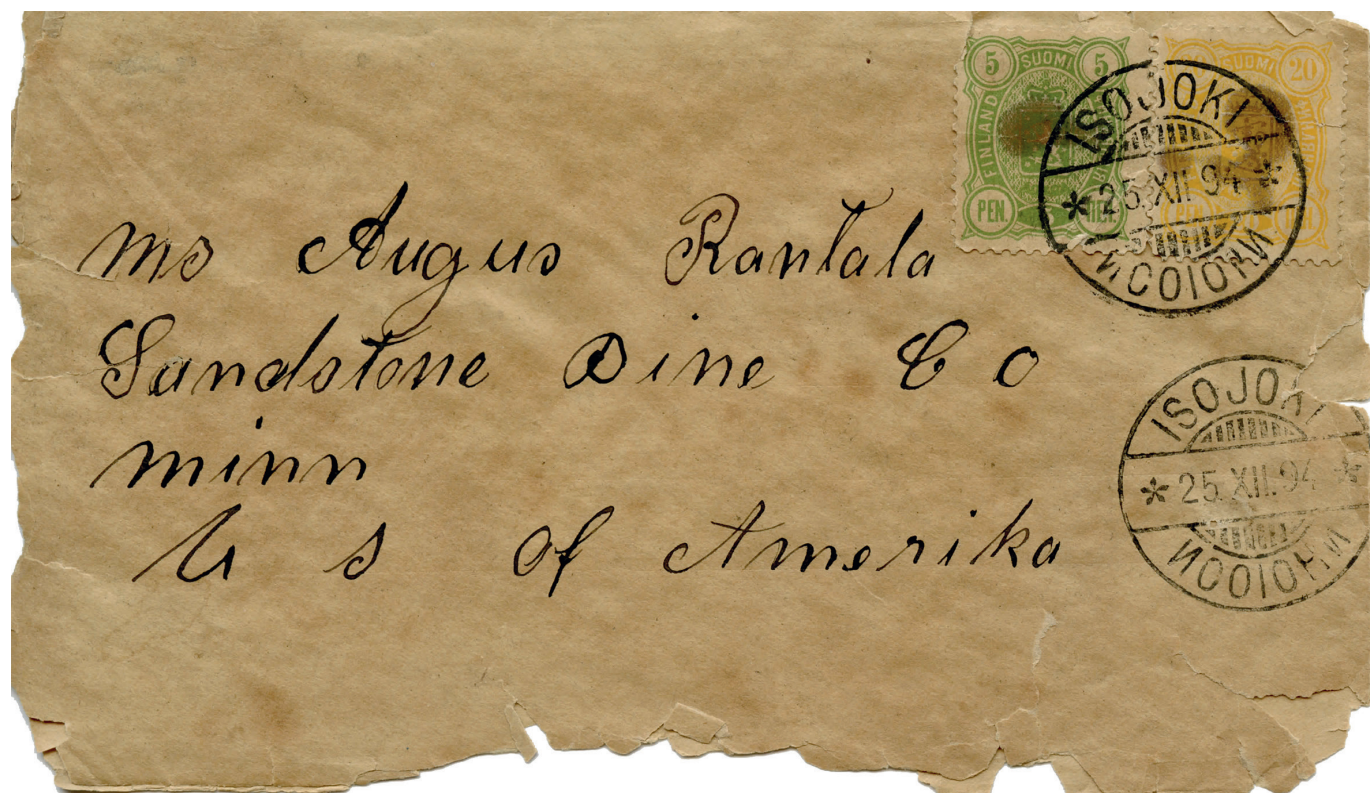 5 SUOMI 5
FINLAND
PEN.
SUOMI 20
PEN
ISOJOKI
* 25.XII.94 *
ИСОІОКИ
Mr Augus Rantala
Sandstone Pine Co
minn
U s of Amerika
ISOJOKI
* 25.XII.94 *
ИСОІОКИ